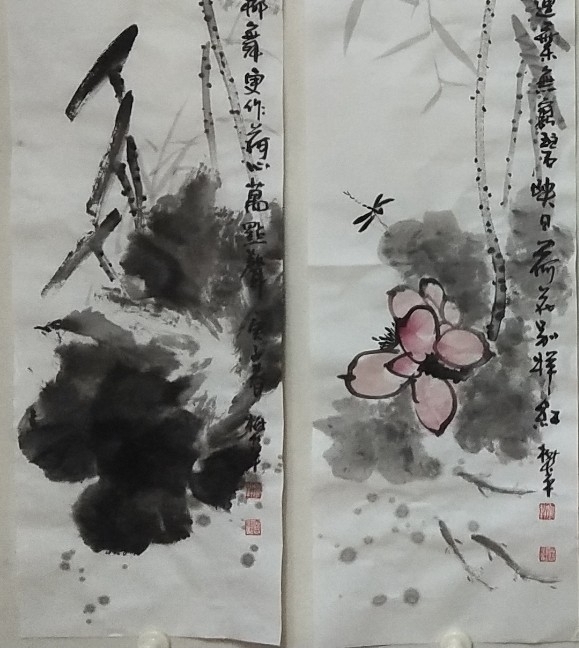 蓮葉無窮碧映日荷花別樣紅 樹平
柳舞更作荷心萬點聲 樹平